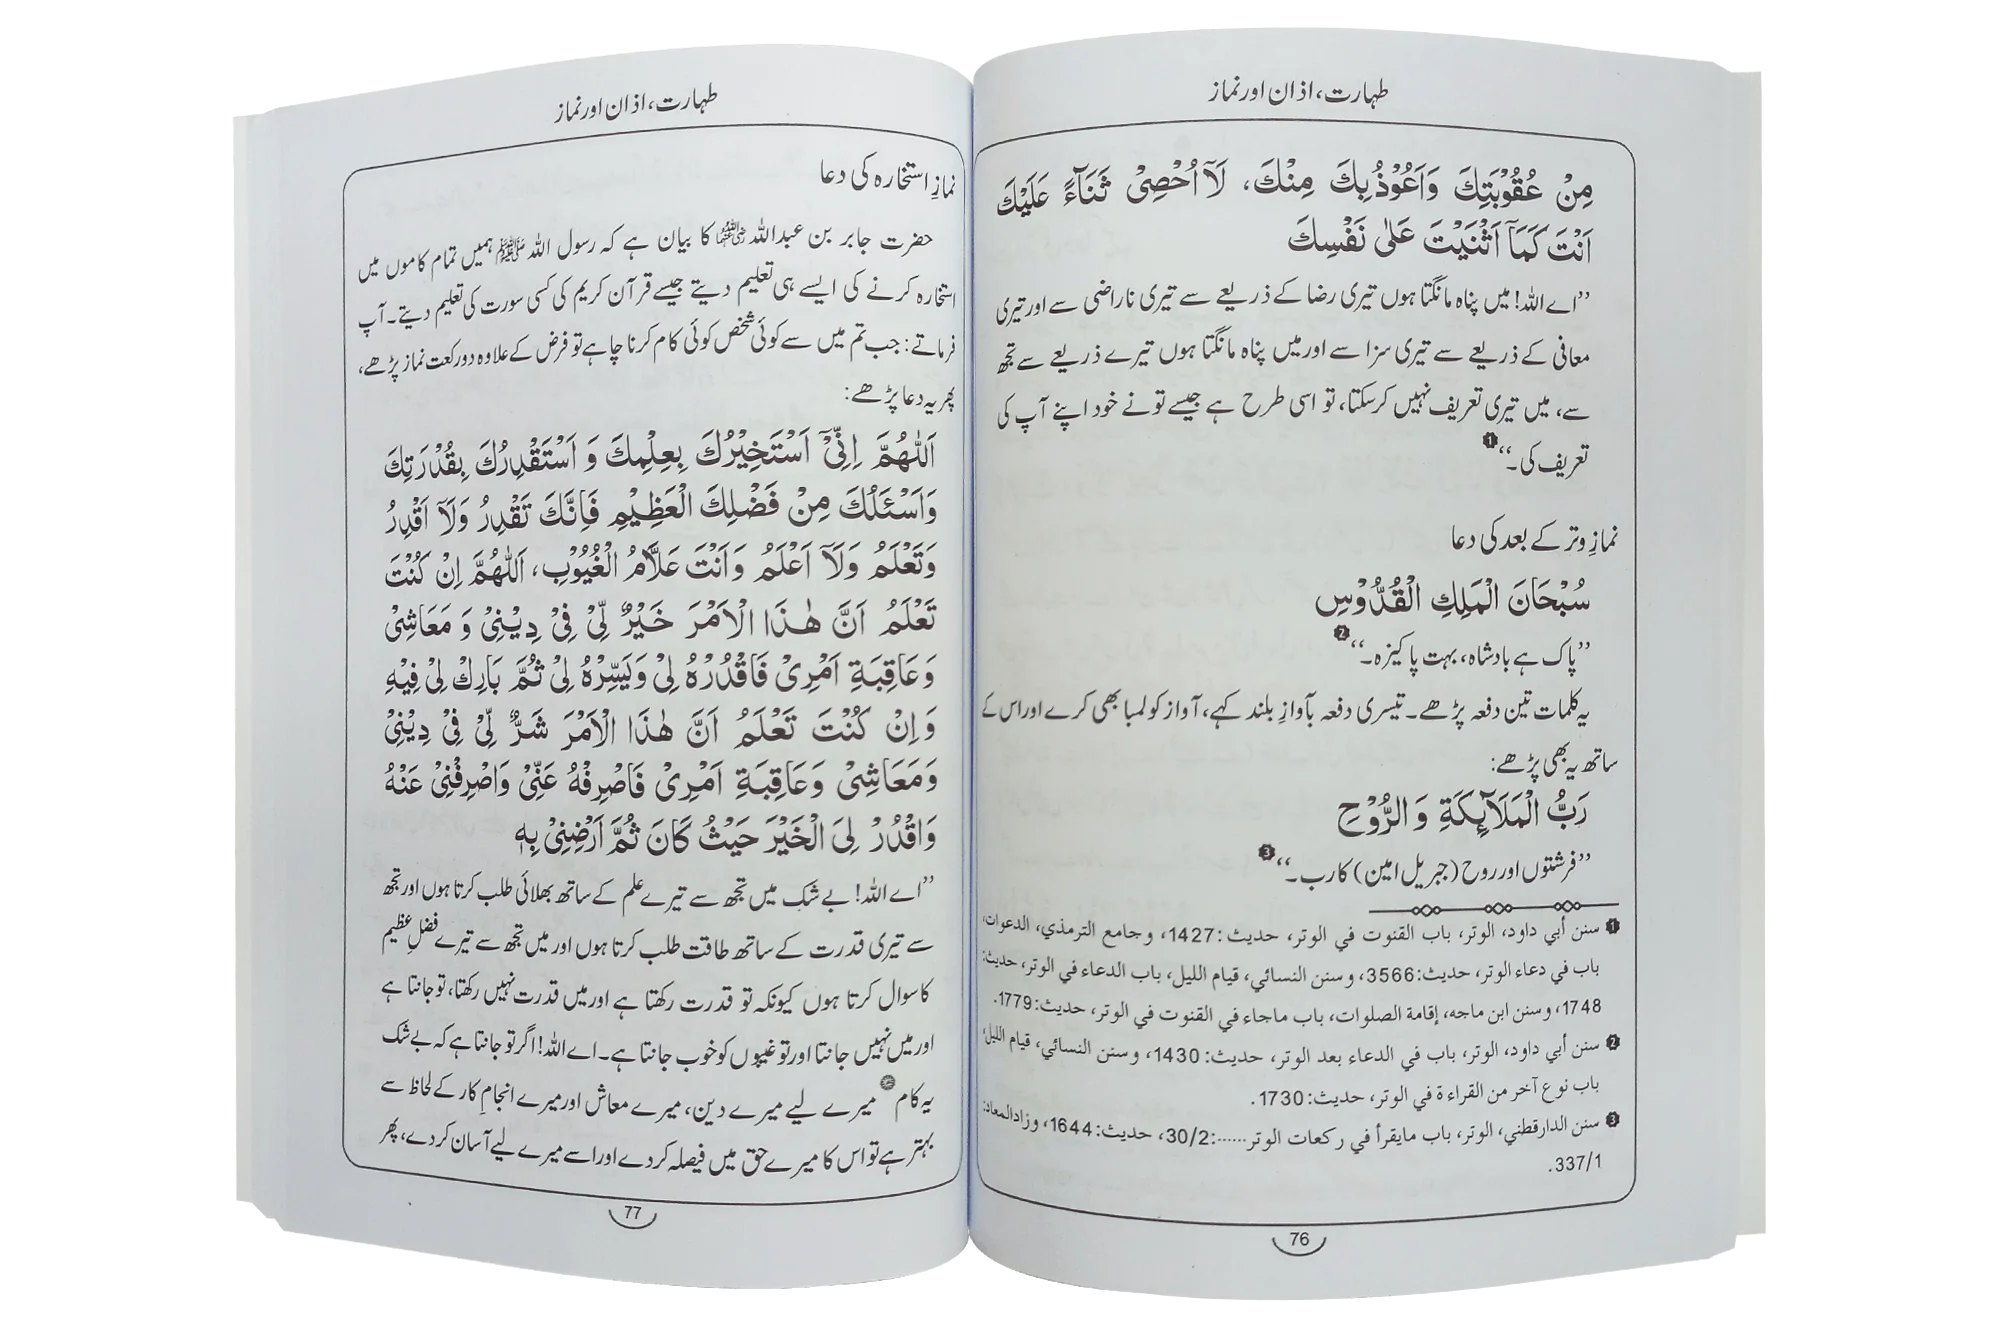 طہارت، اذان اور نماز
مِنْ عُقُوْبَتِكَ وَاَعُوْذُ بِكَ مِنْكَ، لَآ اُحْصِیْ ثَنَآءً عَلَیْكَ
اَنْتَ كَمَآ اَثْنَیْتَ عَلٰی نَفْسِكَ
’’اے اللہ! میں پناہ مانگتا ہوں تیری رضا کے ذریعے سے تیری ناراضی سے اور تیری
معافی کے ذریعے سے تیری سزا سے اور میں پناہ مانگتا ہوں تیرے ذریعے سے تجھ
سے، میں تیری تعریف نہیں کر سکتا، تو اسی طرح ہے جیسے تو نے خود اپنے آپ کی
تعریف کی۔‘‘ 1
نمازِ وتر کے بعد کی دعا
سُبْحَانَ الْمَلِكِ الْقُدُّوْسِ
’’پاک ہے بادشاہ، بہت پاکیزہ۔‘‘ 2
یہ کلمات تین دفعہ پڑھے۔ تیسری دفعہ بآوازِ بلند کہے، آواز کو لمبا بھی کرے اور اس کے
ساتھ یہ بھی پڑھے:
رَبُّ الْمَلَآئِكَةِ وَالرُّوْحِ
’’فرشتوں اور روح (جبریل امین) کا رب۔‘‘ 3
1 سنن أبي داود، الوتر، باب القنوت في الوتر، حديث:1427، وجامع الترمذي، الدعوات،
باب في دعاء الوتر، حديث:3566، وسنن النسائي، قيام الليل، باب الدعاء في الوتر، حديث:
1748، وسنن ابن ماجه، إقامة الصلوات، باب ماجاء في القنوت في الوتر، حديث:1779.
2 سنن أبي داود، الوتر، باب في الدعاء بعد الوتر، حديث: 1430، وسنن النسائي، قيام الليل،
باب نوع آخر من القراءة في الوتر، حديث:1730.
3 سنن الدارقطني، الوتر، باب مايقرأ في ركعات الوتر......:30/2، حديث:1644، وزادالمعاد:
337/1.
76
طہارت، اذان اور نماز
نمازِ استخارہ کی دعا
حضرت جابر بن عبداللہ رضی اللہ عنہما کا بیان ہے کہ رسول اللہ ﷺ ہمیں تمام کاموں میں
استخارہ کرنے کی ایسے ہی تعلیم دیتے جیسے قرآن کریم کی کسی سورت کی تعلیم دیتے۔ آپ
فرماتے: جب تم میں سے کوئی شخص کوئی کام کرنا چاہے تو فرض کے علاوہ دو رکعت نماز پڑھے،
پھر یہ دعا پڑھے:
اَللّٰهُمَّ اِنِّیْٓ اَسْتَخِیْرُكَ بِعِلْمِكَ وَ اَسْتَقْدِرُكَ بِقُدْرَتِكَ
وَاَسْئَلُكَ مِنْ فَضْلِكَ الْعَظِیْمِ فَاِنَّكَ تَقْدِرُ وَلَآ اَقْدِرُ
وَتَعْلَمُ وَلَآ اَعْلَمُ وَاَنْتَ عَلَّامُ الْغُیُوْبِ، اَللّٰهُمَّ اِنْ كُنْتَ
تَعْلَمُ اَنَّ هٰذَا الْاَمْرَ خَیْرٌ لِّیْ فِیْ دِیْنِیْ وَ مَعَاشِیْ
وَعَاقِبَةِ اَمْرِیْ فَاقْدُرْهُ لِیْ وَیَسِّرْهُ لِیْ ثُمَّ بَارِكْ لِیْ فِیْهِ
وَاِنْ كُنْتَ تَعْلَمُ اَنَّ هٰذَا الْاَمْرَ شَرٌّ لِّیْ فِیْ دِیْنِیْ
وَمَعَاشِیْ وَعَاقِبَةِ اَمْرِیْ فَاصْرِفْهُ عَنِّیْ وَاصْرِفْنِیْ عَنْهُ
وَاقْدُرْ لِیَ الْخَیْرَ حَیْثُ كَانَ ثُمَّ اَرْضِنِیْ بِهٖ
’’اے اللہ! بے شک میں تجھ سے تیرے علم کے ساتھ بھلائی طلب کرتا ہوں اور تجھ
سے تیری قدرت کے ساتھ طاقت طلب کرتا ہوں اور میں تجھ سے تیرے فضلِ عظیم
کا سوال کرتا ہوں کیونکہ تو قدرت رکھتا ہے اور میں قدرت نہیں رکھتا، تو جانتا ہے
اور میں نہیں جانتا اور تو غیبوں کو خوب جانتا ہے۔ اے اللہ! اگر تو جانتا ہے کہ بے شک
یہ کام میرے لیے میرے دین، میرے معاش اور میرے انجامِ کار کے لحاظ سے
بہتر ہے تو اس کا میرے حق میں فیصلہ کر دے اور اسے میرے لیے آسان کر دے، پھر
77